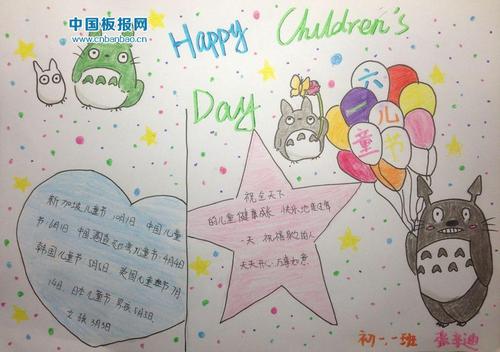 中国板报网
www.cnbanbao.cn
Happy Children's
Day
六一儿童节
新加坡儿童节 10月1日 中国儿童
节:6月1日 中国 地区儿童节:4月4日
韩国儿童节 5月5日 英国儿童节 7月
14日. 日本儿童节 男孩5月5日
女孩3月3日
祝全天下
的儿童健康成长 快乐地过每
一天 祝福身边的人
天天开心 万事如意.
初一.一班